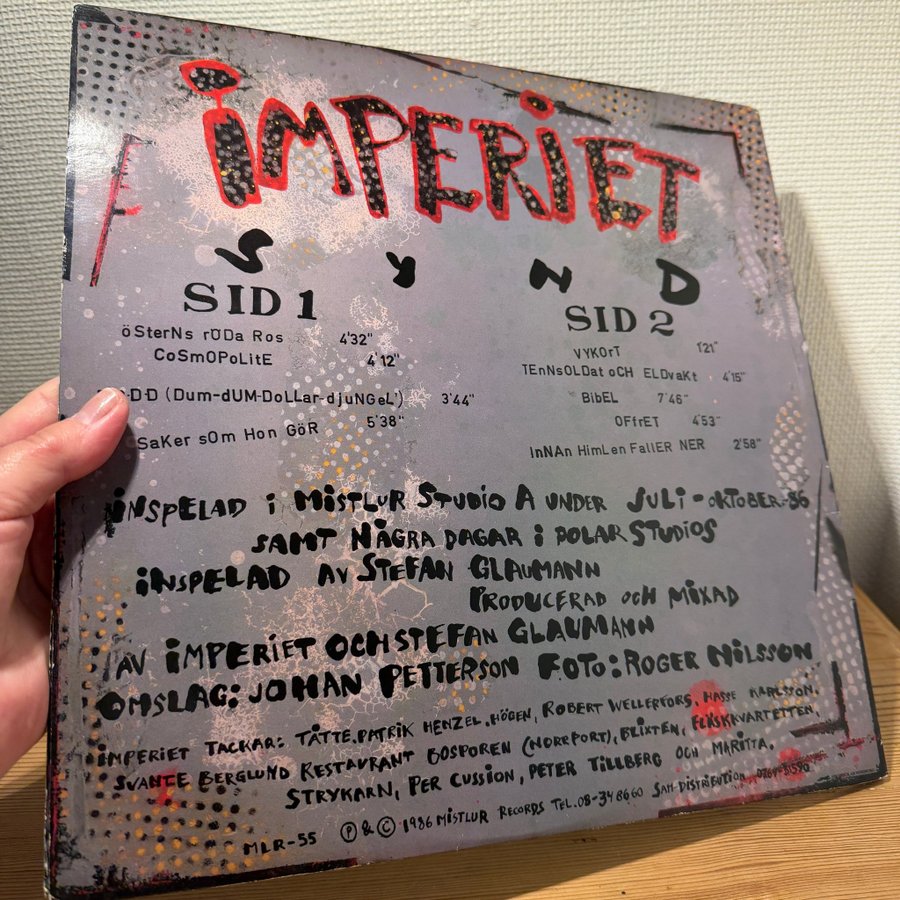 iMPERiET
SYND
SID 1
öSterNs rÖDa Ros 4'32"
CoSmOPoLitE 4'12"
D-D (Dum-dUM-DoLLar-djuNGeL') 3'44"
SaKer sOm Hon GöR 5'38"
SID 2
VYKOrT 1'21"
TEnNsOLDat oCH ELDvaKt 4'15"
BibEL 7'46"
OFfrET 4'53"
InNAn HimLen FallER NER 2'58"
iNSPELAD i MiSTLUR STUDiO A UNDER JULi - OKTOBER-86
SAMT NÅGRA DAGAR i POLAR STUDiOS
iNSPELAD AV STEFAN GLAUMANN
PRODUCERAD OCH MiXAD
AV iMPERiET OCH STEFAN GLAUMANN
OMSLAG: JOHAN PETTERSON FOTO: ROGER NiLSSON
iMPERIET TACKAR: TÅTTE, PATRIK HENZEL, HÖGEN, ROBERT WELLERFORS, HASSE KARLSSON,
SVANTE BERGLUND RESTAURANT BOSPOREN (NORRPORT), BLIXTEN, FLÄSKKVARTETTEN,
STRYKARN, PER CUSSION, PETER TILLBERG OCH MARITTA.
MLR-55 Ⓟ & © 1986 MISTLUR RECORDS TEL. 08-348660 SAM-DISTRIBUTION